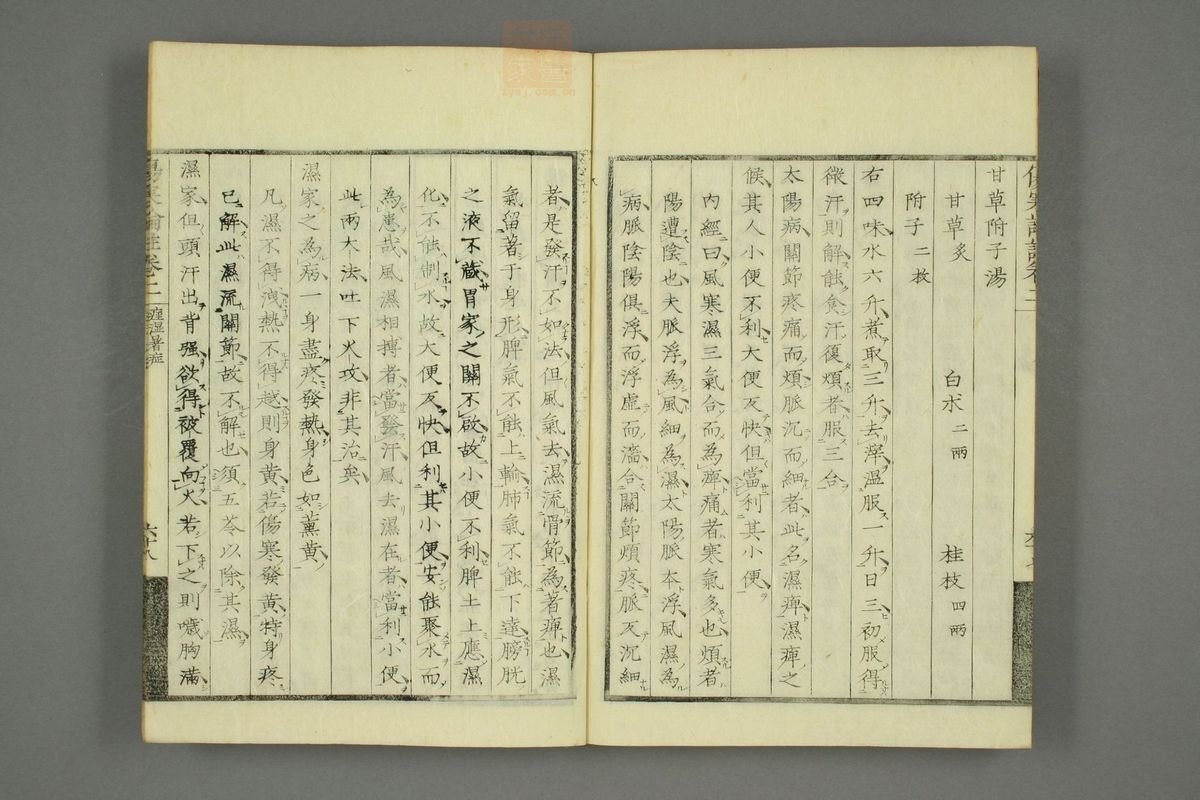 甘草附子湯
甘草炙 白朮二兩 桂枝四兩
附子二枚
右四味水六升煮取三升去滓溫服一升日三初服得
微汗則解能食汗復煩者服三合
太陽病關節疼痛而煩脈沉而細者此名濕痺濕痺之
候其人小便不利大便反快但當利其小便
內經曰風寒濕三氣合而為痺痛者寒氣多也煩者
陽遭陰也夫脈浮為風細為濕太陽脈本浮風濕為
病脈陰陽俱浮而浮虛而濇合關節煩疼脈反沉細
者是發汗不如法但風氣去濕流骨節為著痺也濕
氣留著于身形脾氣不能上輸肺氣不能下達膀胱
之液不藏胃家之關不啟故小便不利脾土上應濕
化不能制水故大便反快但利其小便安能聚水而
為患哉風濕相搏者當發汗風去濕在者當利小便
此兩大法吐下火攻非其治矣
濕家之為病一身盡疼發熱身色如薰黃
凡濕不得洩熱不得越則身黃若傷寒發黃特身疼
已解此濕流關節故不解也須五苓以除其濕
濕家但頭汗出背强欲得被覆向火若下之則噦胸滿
卷二 痙湿暑症
zysj.com.cn